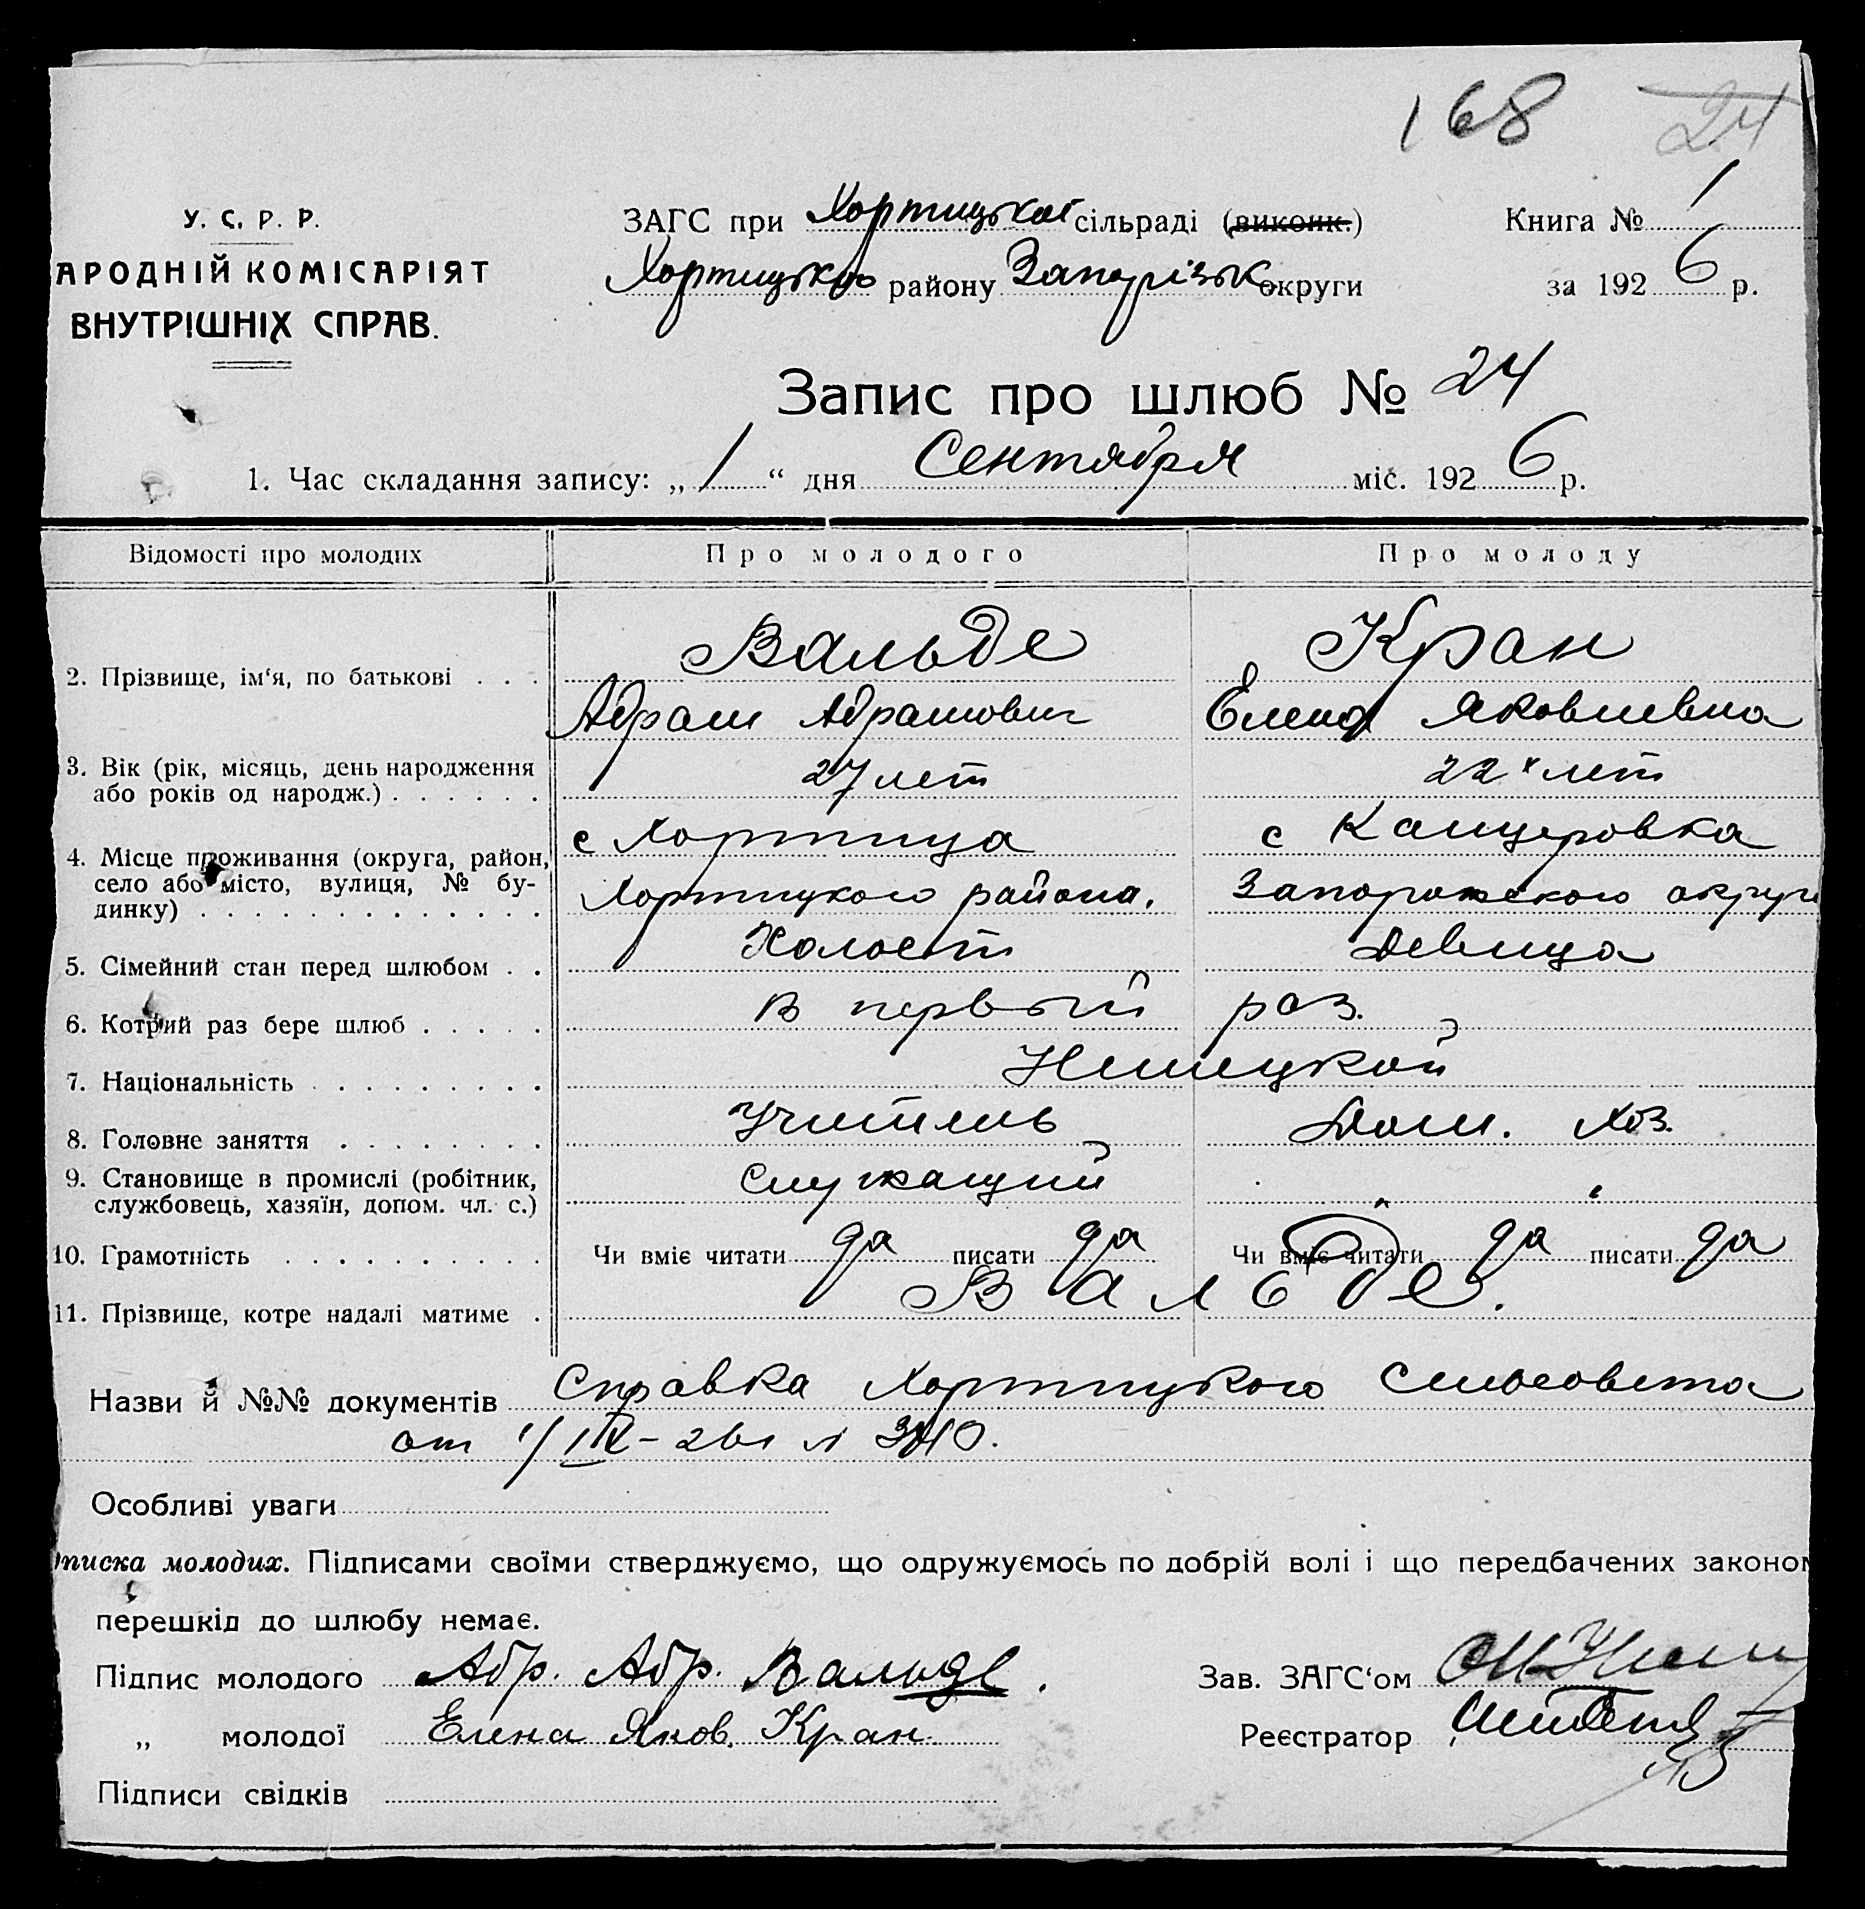 168 24
У. С. Р. Р.
АРОДНІЙ КОМІСАРІЯТ
ВНУТРІШНІХ СПРАВ.
ЗАГС при Хортицькой сільраді (виконк.) Книга № 1
Хортицько району Запорізьк округи за 1926 р.
Запис про шлюб № 24
1. Час складання запису: „ 1 “ дня Сентября міс. 1926 р.
Відомості про молодих Про молодого Про молоду
2. Прізвище, ім‘я, по батькові . . . Вальде Кран
Абрам Абрамович Елена Яковлевна
3. Вік (рік, місяць, день народження
або років од народж.) . . . . . . 27 лет 22х лет
4. Місце проживання (округа, район,
село або місто, вулиця, № бу-
динку) . . . . . . . . . . . . . .
с Хортица с Канцеровка
Хортицкого района. Запорожского округа
5. Сімейний стан перед шлюбом . . Холост Девица
6. Котрий раз бере шлюб . . . . . В первый раз.
7. Національність . . . . . . . . . Немецкой
8. Головне заняття . . . . . . . . Учитель Дом. хоз.
9. Становище в промислі (робітник,
службовець, хазяїн, допом. чл. с.)
Служащий " "
10. Грамотність . . . . . . . . . . Чи вміє читати да писати да Чи вміє читати да писати да
11. Прізвище, котре надалі матиме . Вальде.
Назви й №№ документів Справка Хортицкого Сельсовета
от 1/IX-26 г
Особливі уваги
писка молодих. Підписами своїми стверджуємо, що одружуємось по добрій волі і що передбачених законом
перешкід до шлюбу немає.
Підпис молодого Абр. Абр. Вальде. Зав. ЗАГС‘ом
„ молодої Елена Яков. Кран. Реєстратор
Підписи свідків